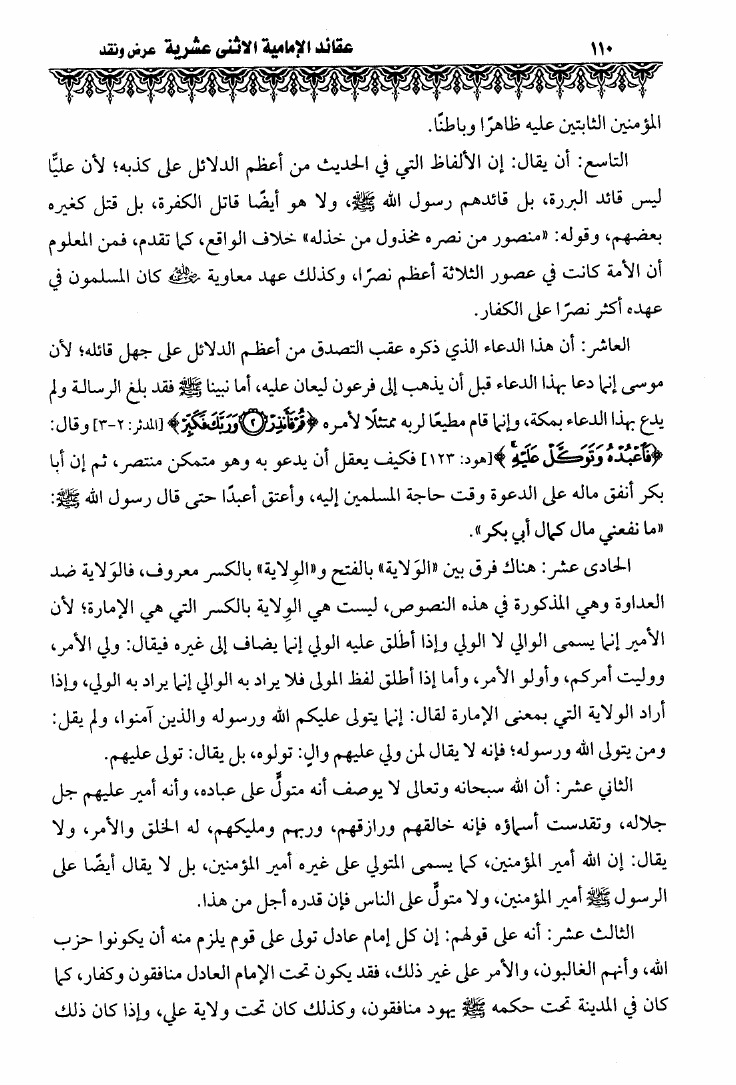 ١١٠
عقائد الإمامية الاثنى عشرية عرض ونقد
المؤمنين الثابتين عليه ظاهرًا وباطنًا.
التاسع: أن يقال: إن الألفاظ التي في الحديث من أعظم الدلائل على كذبه؛ لأن عليًّا
ليس قائد البررة، بل قائدهم رسول الله ﷺ، ولا هو أيضًا قاتل الكفرة، بل قتل كغيره
بعضهم، وقوله: «منصور من نصره مخذول من خذله» خلاف الواقع، كما تقدم، فمن المعلوم
أن الأمة كانت في عصور الثلاثة أعظم نصرًا، وكذلك عهد معاوية رضي الله عنه كان المسلمون في
عهده أكثر نصرًا على الكفار.
العاشر: أن هذا الدعاء الذي ذكره عقب التصدق من أعظم الدلائل على جهل قائله؛ لأن
موسى إنما دعا بهذا الدعاء قبل أن يذهب إلى فرعون ليعان عليه، أما نبينا ﷺ فقد بلغ الرسالة ولم
يدع بهذا الدعاء بمكة، وإنما قام مطيعًا لربه ممتثلًا لأمره ﴿قُمْ فَأَنذِرْ ۝٢ وَرَبَّكَ فَكَبِّرْ﴾ [المدثر: ٢-٣] وقال:
﴿فَاعْبُدْهُ وَتَوَكَّلْ عَلَيْهِ ۚ﴾ [هود: ١٢٣] فكيف يعقل أن يدعو به وهو متمكن منتصر، ثم إن أبا
بكر أنفق ماله على الدعوة وقت حاجة المسلمين إليه، وأعتق أعبدًا حتى قال رسول الله ﷺ:
«ما نفعني مال كمال أبي بكر».
الحادى عشر: هناك فرق بين «الوَلاية» بالفتح و«الوِلاية» بالكسر معروف، فالوَلاية ضد
العداوة وهي المذكورة في هذه النصوص، ليست هي الوِلاية بالكسر التي هي الإمارة؛ لأن
الأمير إنما يسمى الوالي لا الولي وإذا أطلق عليه الولي إنما يضاف إلى غيره فيقال: ولي الأمر،
ووليت أمركم، وأولو الأمر، وأما إذا أطلق لفظ المولى فلا يراد به الوالي إنما يراد به الولي، وإذا
أراد الولاية التي بمعنى الإمارة لقال: إنما يتولى عليكم الله ورسوله والذين آمنوا، ولم يقل:
ومن يتولى الله ورسوله؛ فإنه لا يقال لمن ولي عليهم والٍ: تولوه، بل يقال: تولى عليهم.
الثاني عشر: أن الله سبحانه وتعالى لا يوصف أنه متولٍّ على عباده، وأنه أمير عليهم جل
جلاله، وتقدست أسماؤه فإنه خالقهم ورازقهم، وربهم ومليكهم، له الخلق والأمر، ولا
يقال: إن الله أمير المؤمنين، كما يسمى المتولي على غيره أمير المؤمنين، بل لا يقال أيضًا على
الرسول ﷺ أمير المؤمنين، ولا متولٍّ على الناس فإن قدره أجل من هذا.
الثالث عشر: أنه على قولهم: إن كل إمام عادل تولى على قوم يلزم منه أن يكونوا حزب
الله، وأنهم الغالبون، والأمر على غير ذلك، فقد يكون تحت الإمام العادل منافقون وكفار، كما
كان في المدينة تحت حكمه ﷺ يهود منافقون، وكذلك كان تحت ولاية علي، وإذا كان ذلك